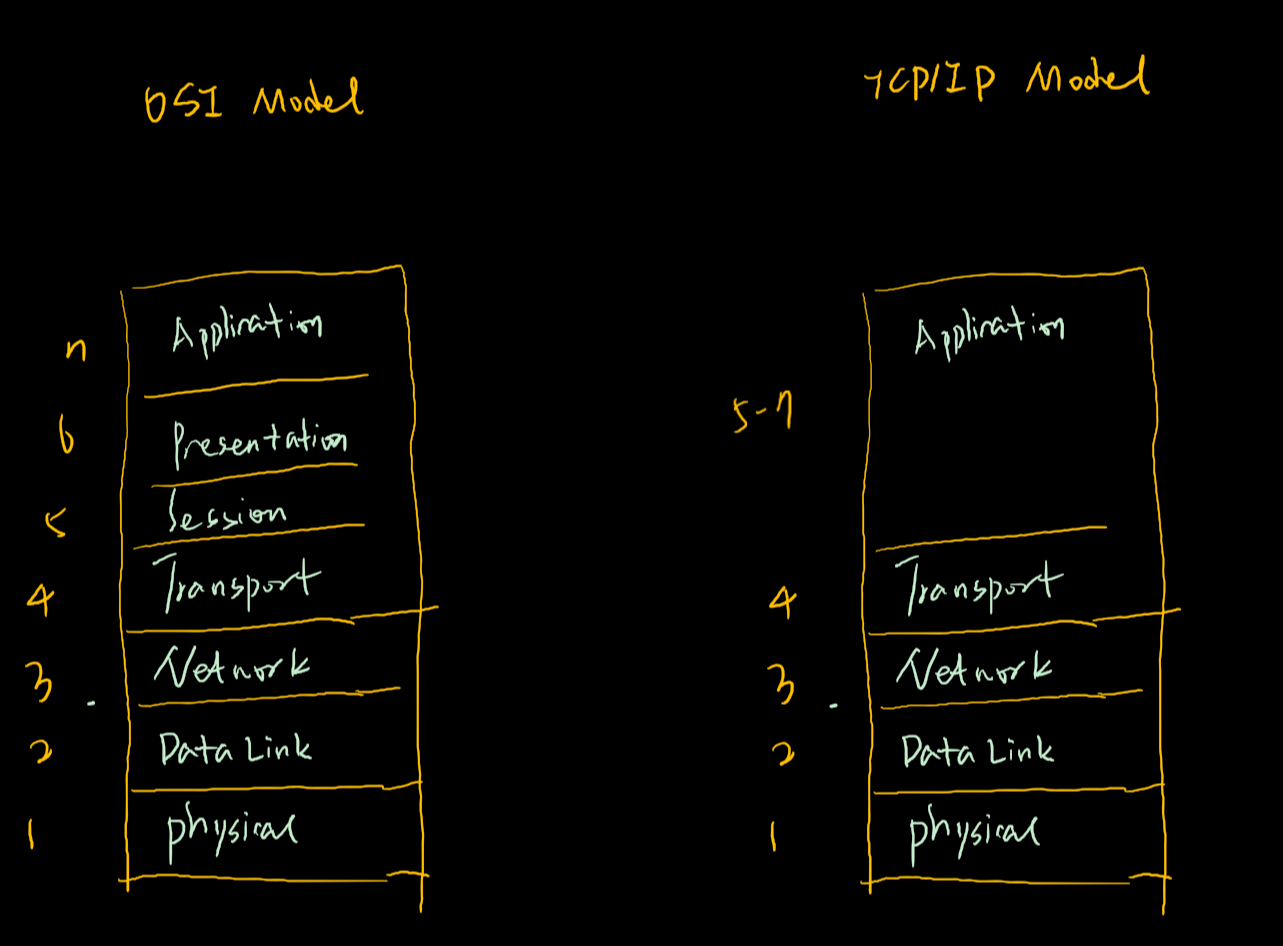 OSI Model
TCP/IP Model
7 Application
6 Presentation
5 Session
4 Transport
3 Network
2 Data Link
1 physical
Application
5-7
4 Transport
3 Network
2 Data Link
1 physical